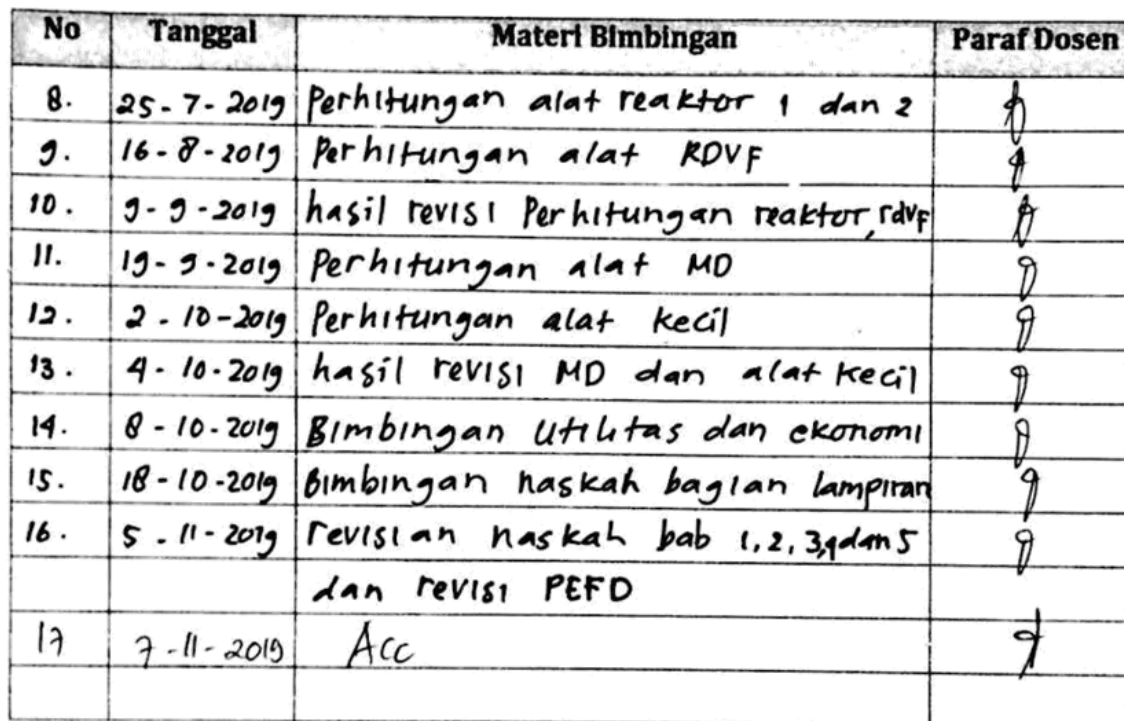 No Tanggal Materi Bimbingan Paraf Dosen
8. 25-7-2019 Perhitungan alat reaktor 1 dan 2
9. 16-8-2019 Perhitungan alat RDVF
10. 9-9-2019 hasil revisi Perhitungan reaktor, rdvf
11. 19-9-2019 Perhitungan alat MD
12. 2-10-2019 Perhitungan alat kecil
13. 4-10-2019 hasil revisi MD dan alat kecil
14. 8-10-2019 Bimbingan Utilitas dan ekonomi
15. 18-10-2019 Bimbingan naskah bagian lampiran
16. 5-11-2019 revisian naskah bab 1, 2, 3, 4 dan 5
dan revisi PEFD
17 7-11-2019 Acc